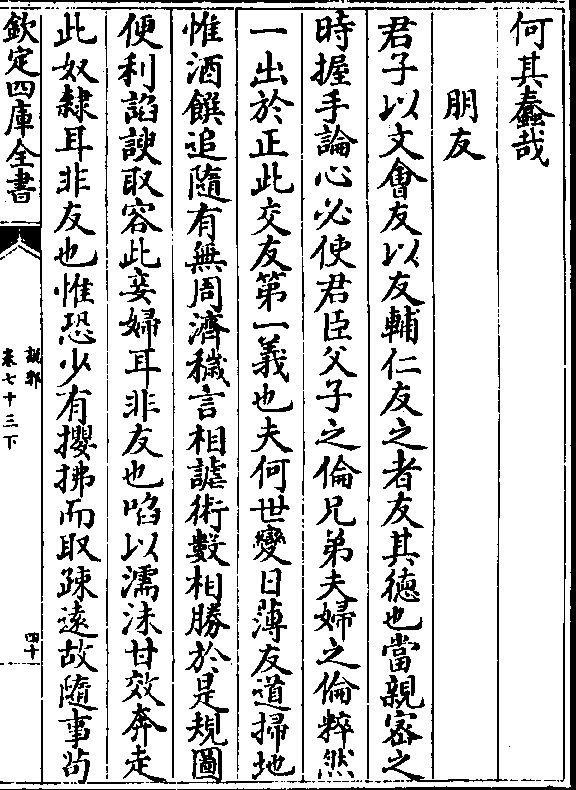 何其蠢哉
朋友
君子以文會友以友輔仁友之者友其德也當親密之
時握手論心必使君臣父子之倫兄弟夫婦之倫粹然
一出於正此交友第一義也夫何世變日薄友道掃地
惟酒饌追隨有無周濟穢言相謔術數相勝於是規圖
便利諂諛取容此妾婦耳非友也啗以濡沫甘效奔走
此奴隸耳非友也惟恐少有攖拂而取疎遠故隨事茍
欽定四庫全書
說郛
卷七十三下
四十